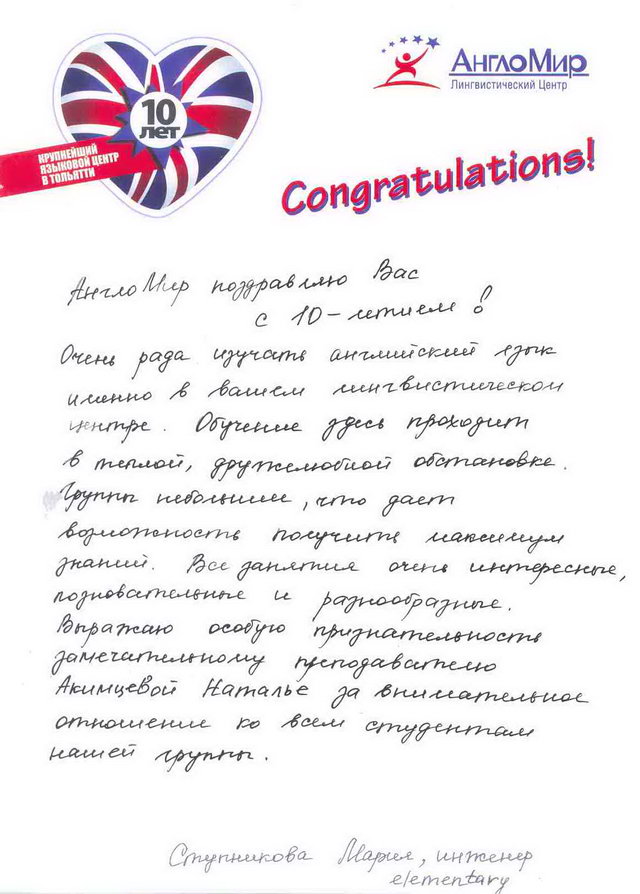 10
ЛЕТ
КРУПНЕЙШИЙ
ЯЗЫКОВОЙ ЦЕНТР
В ТОЛЬЯТТИ
АнглоМир
Лингвистический Центр
Congratulations!
АнглоМир поздравляю Вас
с 10-летием!
Очень рада изучать английский язык
именно в вашем лингвистическом
центре. Обучение здесь проходит
в теплой, дружелюбной обстановке.
Группы небольшие, что дает
возможность получить максимум
знаний. Все занятия очень интересные,
позновательные и разнообразные.
Выражаю особую признательность
замечательному преподавателю
Акимцевой Наталье за внимательное
отношение ко всем студентам
нашей группы.
Ступникова Мария, инженер
elementary